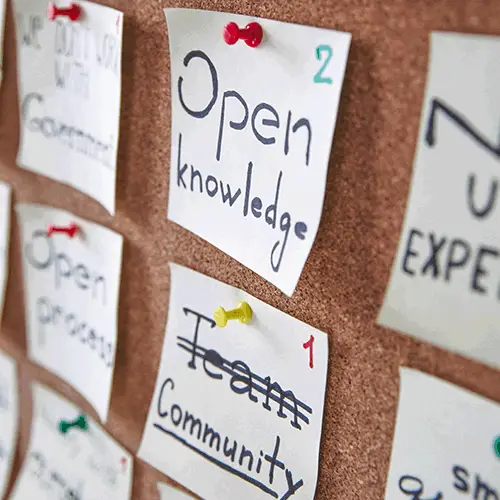 we DON'T work
WITH
Government
1
Open
knowledge
2
Open
process
Team
Community
1
EXPE
sm